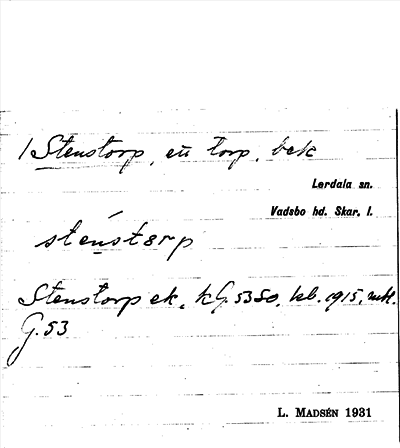 /Stenstorp, ett torp, bek
Lerdala sn.
Vadsbo hd. Skar. l.
sténstərp
Stenstorp ek. kG.53SO, kb. 1915, mtl.
G.53
L. MADSÉN 1931